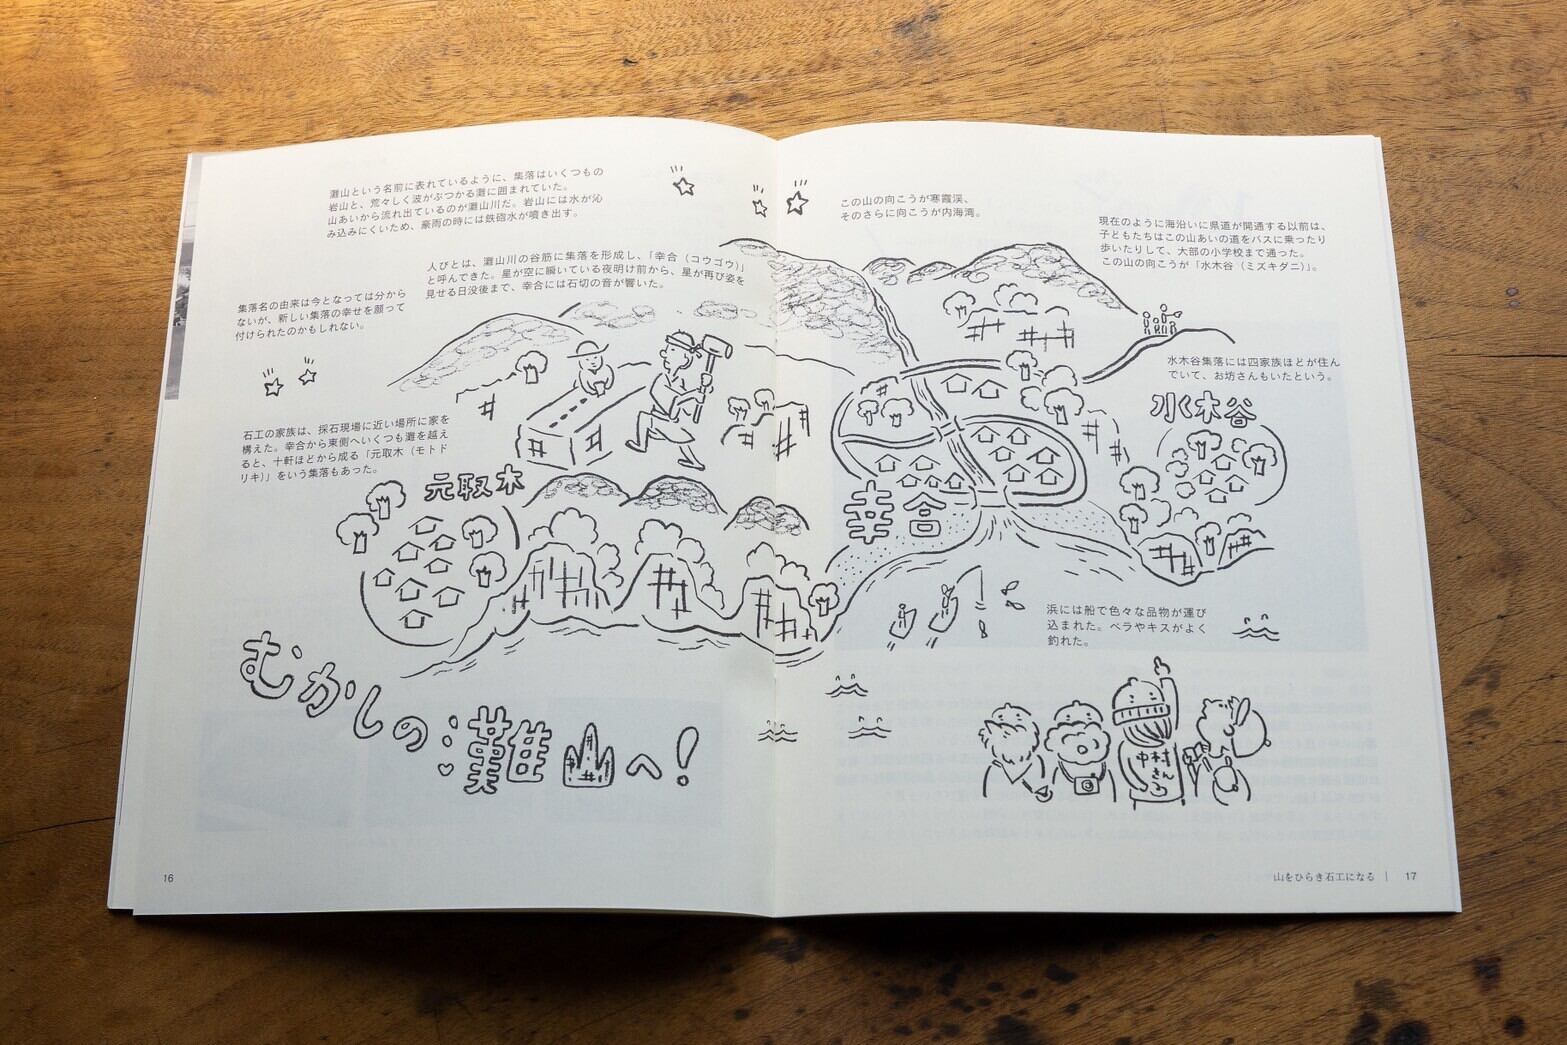 灘山という名前に表れているように、集落はいくつもの
岩山と、荒々しく波がぶつかる灘に囲まれていた。
山あいから流れ出ているのが灘山川だ。岩山には水が沁
み込みにくいため、豪雨の時には鉄砲水が噴き出す。
人びとは、灘山川の谷筋に集落を形成し、「幸合（コウゴウ）」
と呼んできた。星が空に瞬いている夜明け前から、星が再び姿を
見せる日没後まで、幸合には石切の音が響いた。
集落名の由来は今となっては分から
ないが、新しい集落の幸せを願って
付けられたのかもしれない。
石工の家族は、採石現場に近い場所に家を
構えた。幸合から東側へいくつも灘を越え
ると、十軒ほどから成る「元取木（モトド
リキ）」をいう集落もあった。
元取木
むかしの灘山へ！
16
この山の向こうが寒霞渓、
そのさらに向こうが内海湾。
現在のように海沿いに県道が開通する以前は、
子どもたちはこの山あいの道をバスに乗ったり
歩いたりして、大部の小学校まで通った。
この山の向こうが「水木谷（ミズキダニ）」。
水木谷集落には四家族ほどが住ん
でいて、お坊さんもいたという。
水木谷
幸合
浜には船で色々な品物が運び
込まれた。ベラやキスがよく
釣れた。
中村
さん
山をひらき石工になる | 17